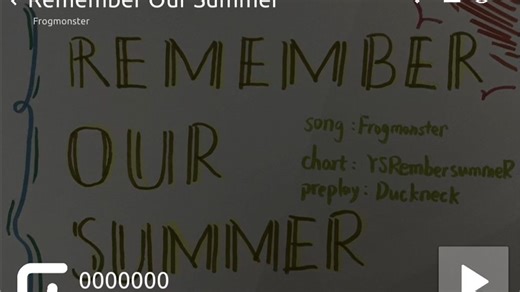 Remember Our Summer
Frogmonster
REMEMBER
OUR
SUMMER
song : Frogmonster
chart : YSRembersummeR
preploy : Duckneck
0000000